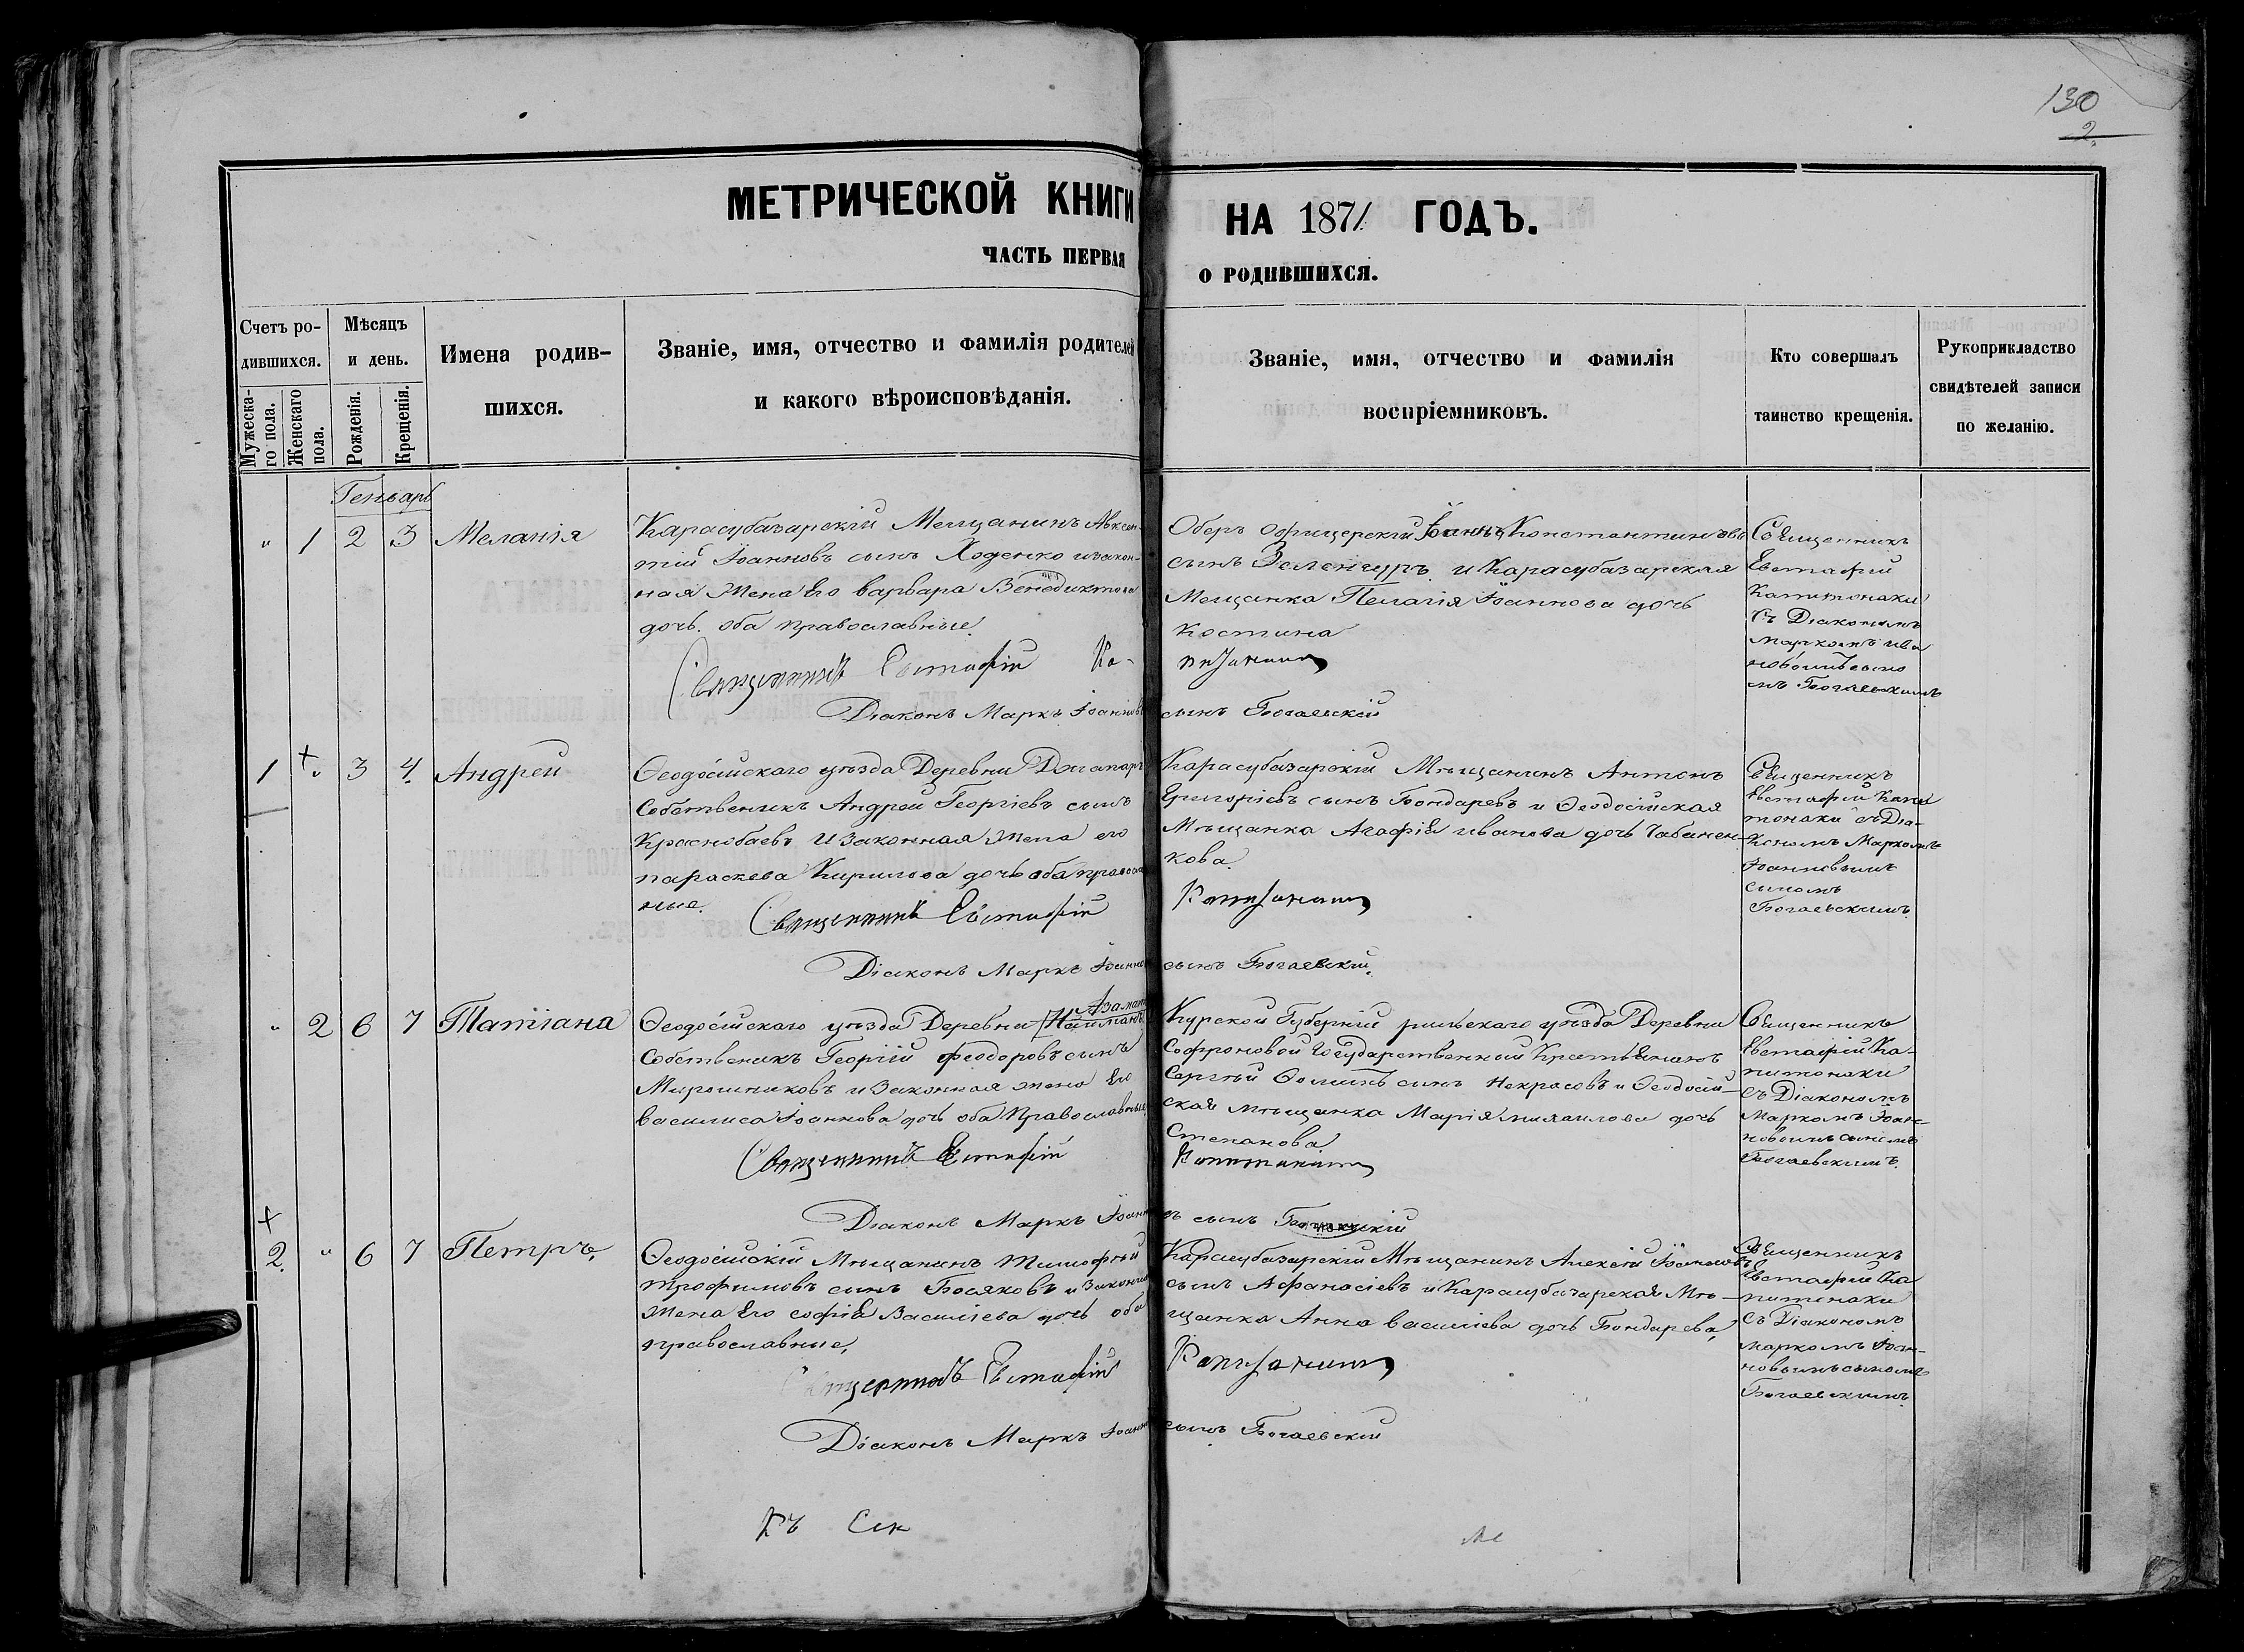 130
2.
МЕТРИЧЕСКОЙ КНИГИ НА 1871 ГОДЪ.
ЧАСТЬ ПЕРВАЯ О РОДИВШИХСЯ.
Счетъ ро-
дившихся.
Мужеска-
го пола.
Женскаго
пола.
Мѣсяцъ
и день.
Рожденія.
Крещенія.
Имена родив-
шихся.
Званіе, имя, отчество и фамилія родителей
и какого вѣроисповѣданія.
Званіе, имя, отчество и фамилія
воспріемниковъ.
Кто совершалъ
таинство крещенія.
Рукоприкладство
свидѣтелей записи
по желанію.
Генварь
" 1 2 3 Меланія
Карасубазарскій Мещанинъ Авксен-
тій Іоанновъ сынъ Ходенко и закон-
ная Жена Его варвара Венедиктова
дочь. оба православные.
Священникъ Евстафій Ка-
Діаконъ Маркъ Іоанновъ
Оберъ Офицерскій Іоаннъ Константиновъ
сынъ Зеленгуръ и Карасубазарская
Мещанка Пелагія Іоаннова дочь
Костина
питонаки
сынъ Богаевскій
Священникъ
Евстафій
Капитонаки
Съ Діакономъ
Маркомъ Ива
новымъ сыно
мъ Богаевскимъ
1 " 3 4 Андрей
Ѳеодосійскаго уѣзда Деревни
Собственикъ Андрей Георгіевъ сынъ
Краснобаевъ и Законная Жена его
параскева Кирилова дочь оба правосла
ные.
Священникъ Евстафій
Діаконъ Маркъ Іоанно
Карасубазарскій Мѣщанинъ Антонъ
Григоріевъ сынъ Бондаревъ и Ѳеодосійская
Мѣщанка Агафія иванова дочь Чабанен-
кова
Капитонаки
сынъ Богаевскій.
Священникъ
Евстафій Капи
тонаки съ Діа-
кономъ Маркомъ
Іоанновымъ
сыномъ
Богаевскимъ
" 2 6 7 Татіана
Ѳеодосійскаго уѣзда Деревни Найманъ
Собственикъ Георгій Феодоровъ сынъ
Мирошниковъ и Законная жена Его
василиса Іоаннова дочь оба Православные
Священникъ Евстафій
Діаконъ Маркъ Іоанн
Курской Губерніи рыльскаго уѣзда Деревни
Софроновой Государственный Крестьянинъ
Сергѣй Ѳоминъ сынъ Некрасовъ и Ѳеодосій-
ская мѣщанка Марія михаилова дочь
Степанова
Капитонаки
ъ сынъ
Священникъ
Евстафій Ка-
питонаки
съ Діакономъ
Маркомъ Іоан-
новымъ сыномъ
Богаевскимъ.
2. " 6 7 Петръ.
Ѳеодосійскій Мѣщанинъ Тимофѣй
Трофимовъ сынъ Босяковъ и Законная
Жена Его софія Василіева дочь оба
православные,
Священникъ Евстафій
Діаконъ Маркъ Іоанно
Карасубазарскій Мѣщанинъ Алексѣй Іоанновъ
сынъ Афанасіевъ и Карасубазарская Мѣ-
щанка Анна василіева дочь Бондарева,
Капитонаки
сынъ Богаевскій
Священникъ
Евстафій Ка
питонаки
Съ Діакономъ
маркомъ Іоан-
новымъ сыномъ
Богаевскимъ.